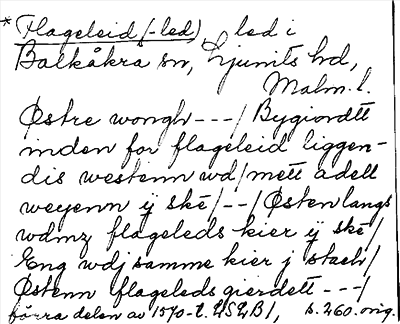 * Flageleid (-led), led i
Balkåkra sn, Ljunits hd,
Malm. l.
Østre wongh ---/ Bygiordtt
inden for flageleid liggen-
dis westenn wd/ mett adell
weyenn ij ske/ --/ Østen langs
wdmz flageleds kier ij ske/
Eng wdj samme kier j stach/
Østenn flageleds gierdett ---/
förra delen av 1570-t. LUSUB 1, s. 260. orig.